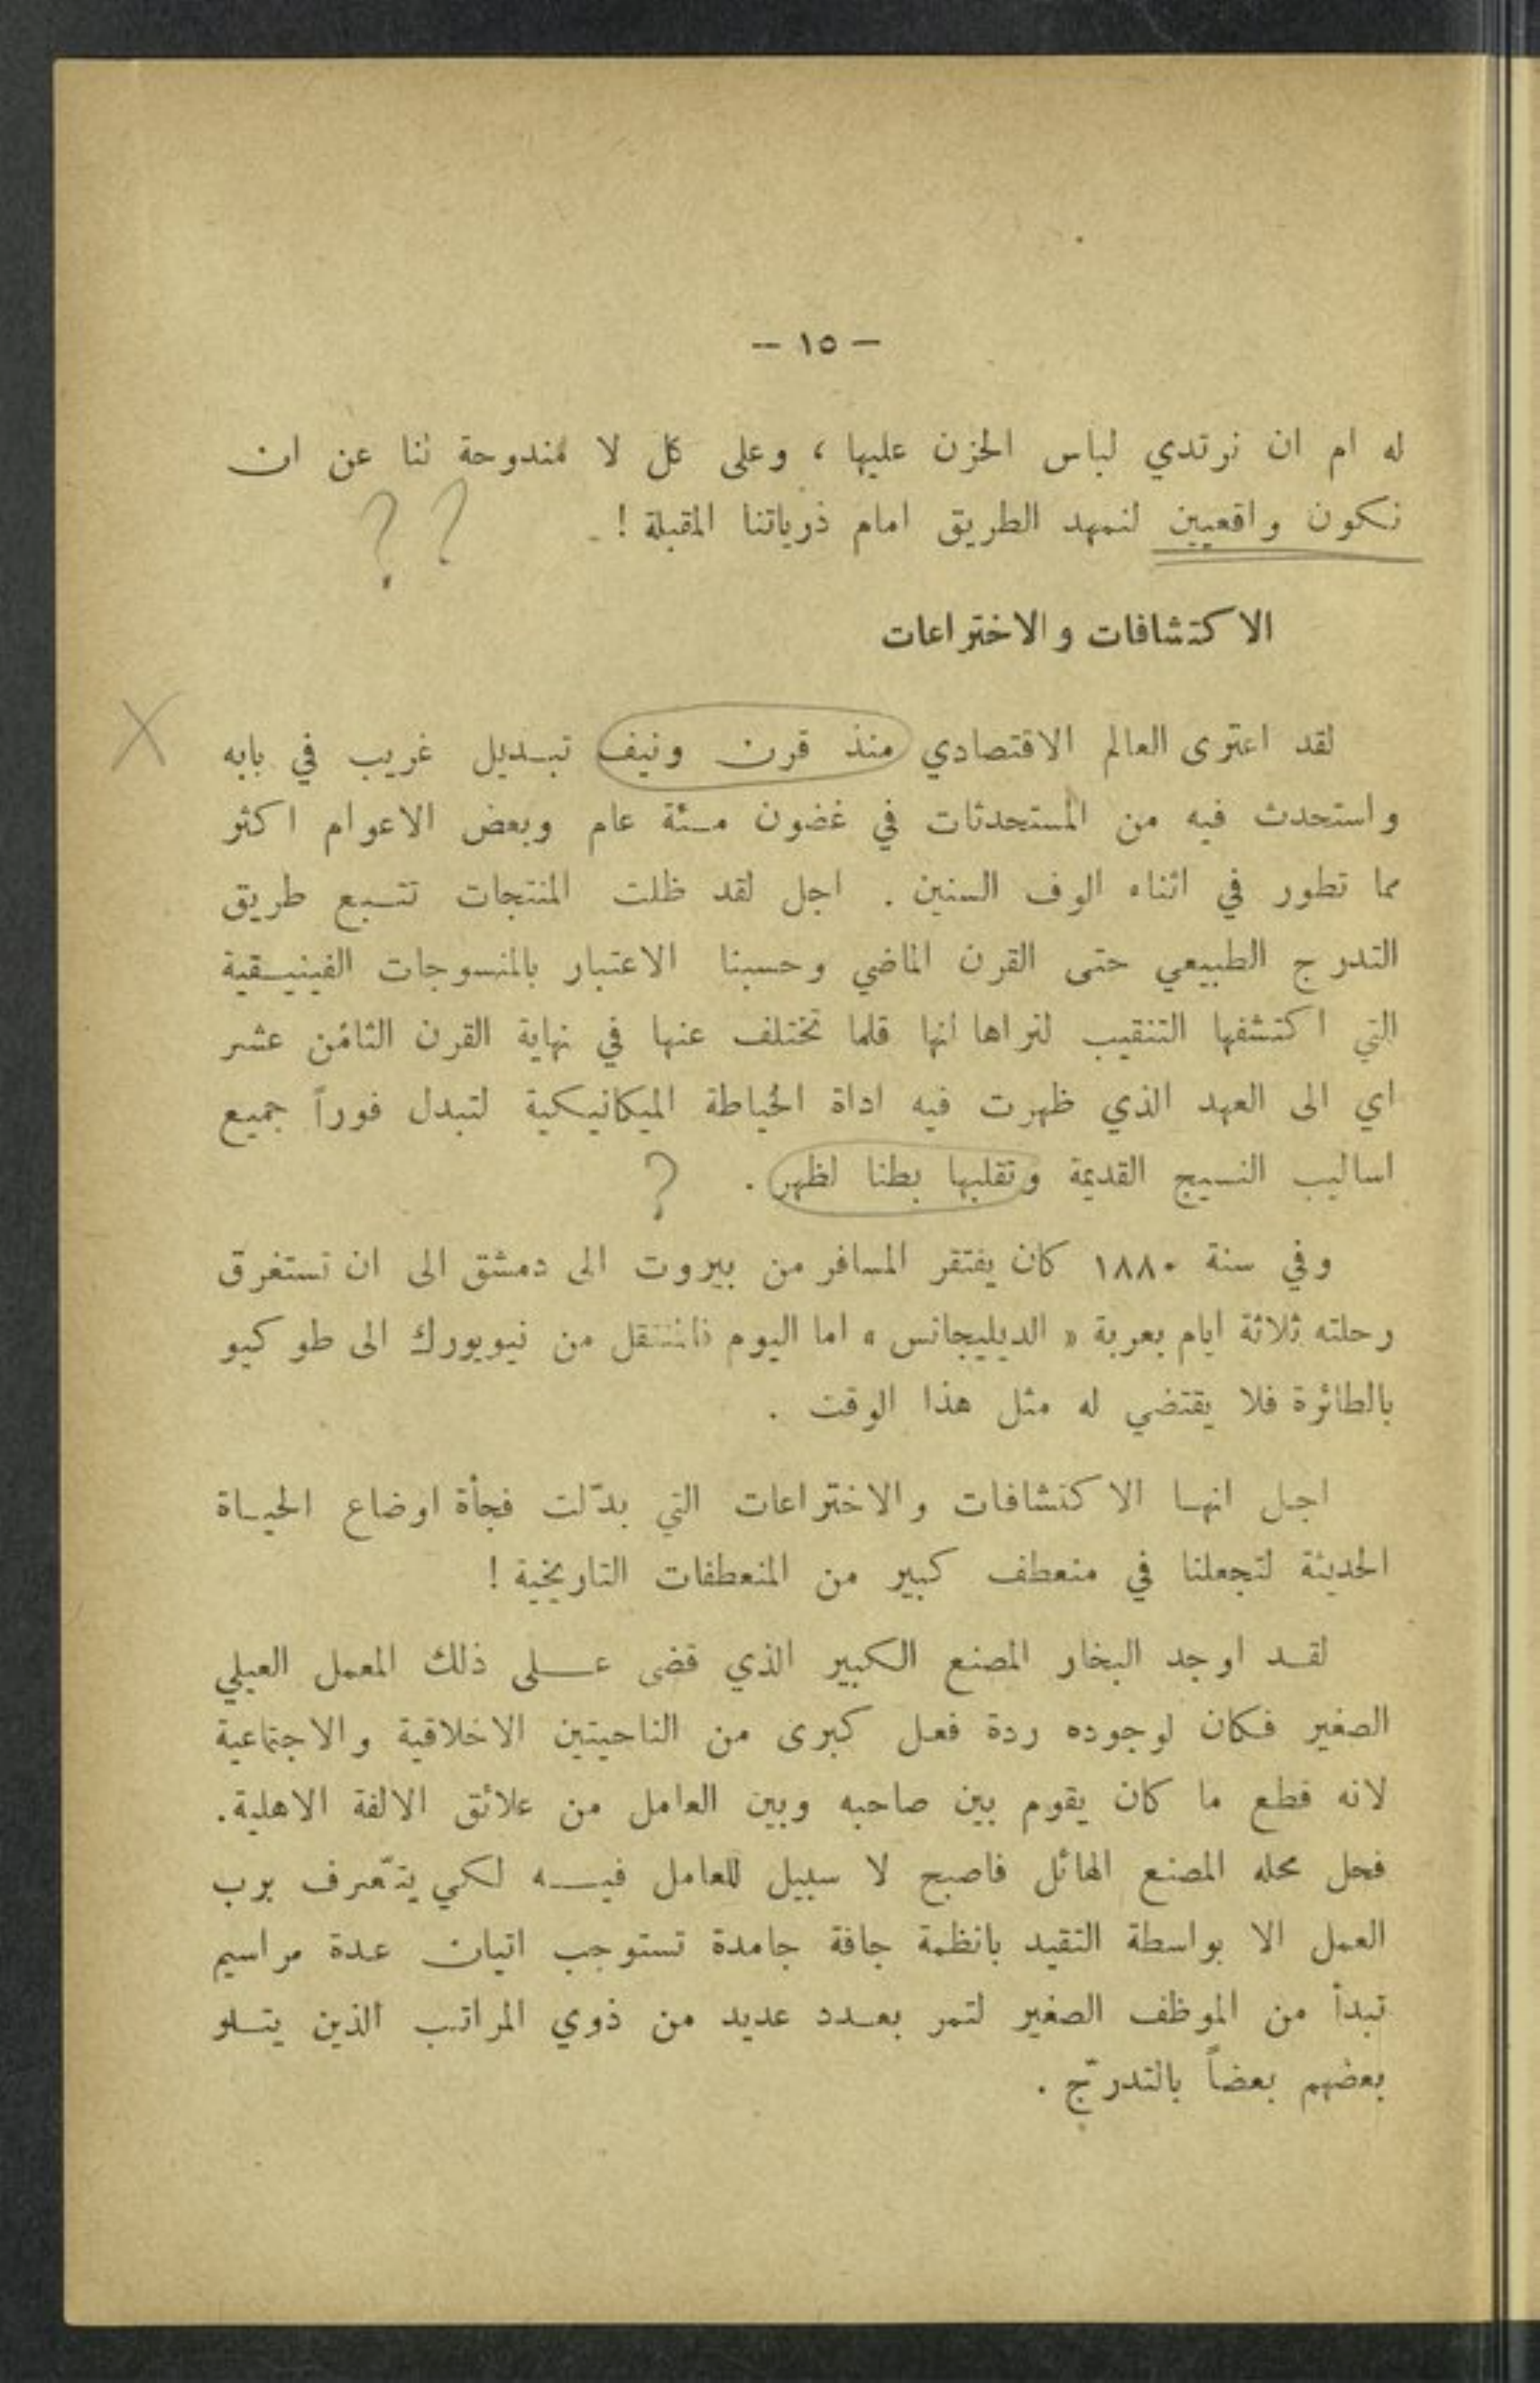 — ١٥ —
له ام ان نرتدي لباس الحزن عليها ، وعلى كل لا مندوحة لنا عن ان
نكون واقعيين لنمهد الطريق امام ذرياتنا المقبلة !
? ?
الاكتشافات والاختراعات
X
لقد اعترى العالم الاقتصادي منذ قرن ونيف تبديل غريب في بابه
واستحدث فيه من المستحدثات في غضون مئة عام وبعض الاعوام اكثر
مما تطور في اثناء الوف السنين . اجل لقد ظلت المنتجات تتبع طريق
التدرج الطبيعي حتى القرن الماضي وحسبنا الاعتبار بالمنسوجات الفينيقية
التي اكتشفها التنقيب لنراها انها قلما تختلف عنها في نهاية القرن الثامن عشر
اي الى العهد الذي ظهرت فيه اداة الحياطة الميكانيكية لتبدل فوراً جميع
اساليب النسيج القديمة وتقلبها بطنا لظهر . ?
وفي سنة ١٨٨٠ كان يفتقر المسافر من بيروت الى دمشق الى ان تستغرق
رحلته ثلاثة ايام بعربة « الديليجانس » اما اليوم فالمتنقل من نيويورك الى طوكيو
بالطائرة فلا يقتضي له مثل هذا الوقت .
اجل انها الاكتشافات والاختراعات التي بدّلت فجأة اوضاع الحياة
الحديثة لتجعلنا في منعطف كبير من المنعطفات التاريخية !
لقد اوجد البخار المصنع الكبير الذي قضى على ذلك المعمل العيلي
الصغير فكان لوجوده ردة فعل كبرى من الناحيتين الاخلاقية والاجتماعية
لانه قطع ما كان يقوم بين صاحبه وبين العامل من علائق الالفة الاهلية.
فحل محله المصنع الهائل فاصبح لا سبيل للعامل فيه لكي يتعّرف برب
العمل الا بواسطة التقيد بانظمة جافة جامدة تستوجب اتيان عدة مراسيم
تبدأ من الموظف الصغير لتمر بعدد عديد من ذوي المراتب الذين يتلو
بعضهم بعضاً بالتدرّج .